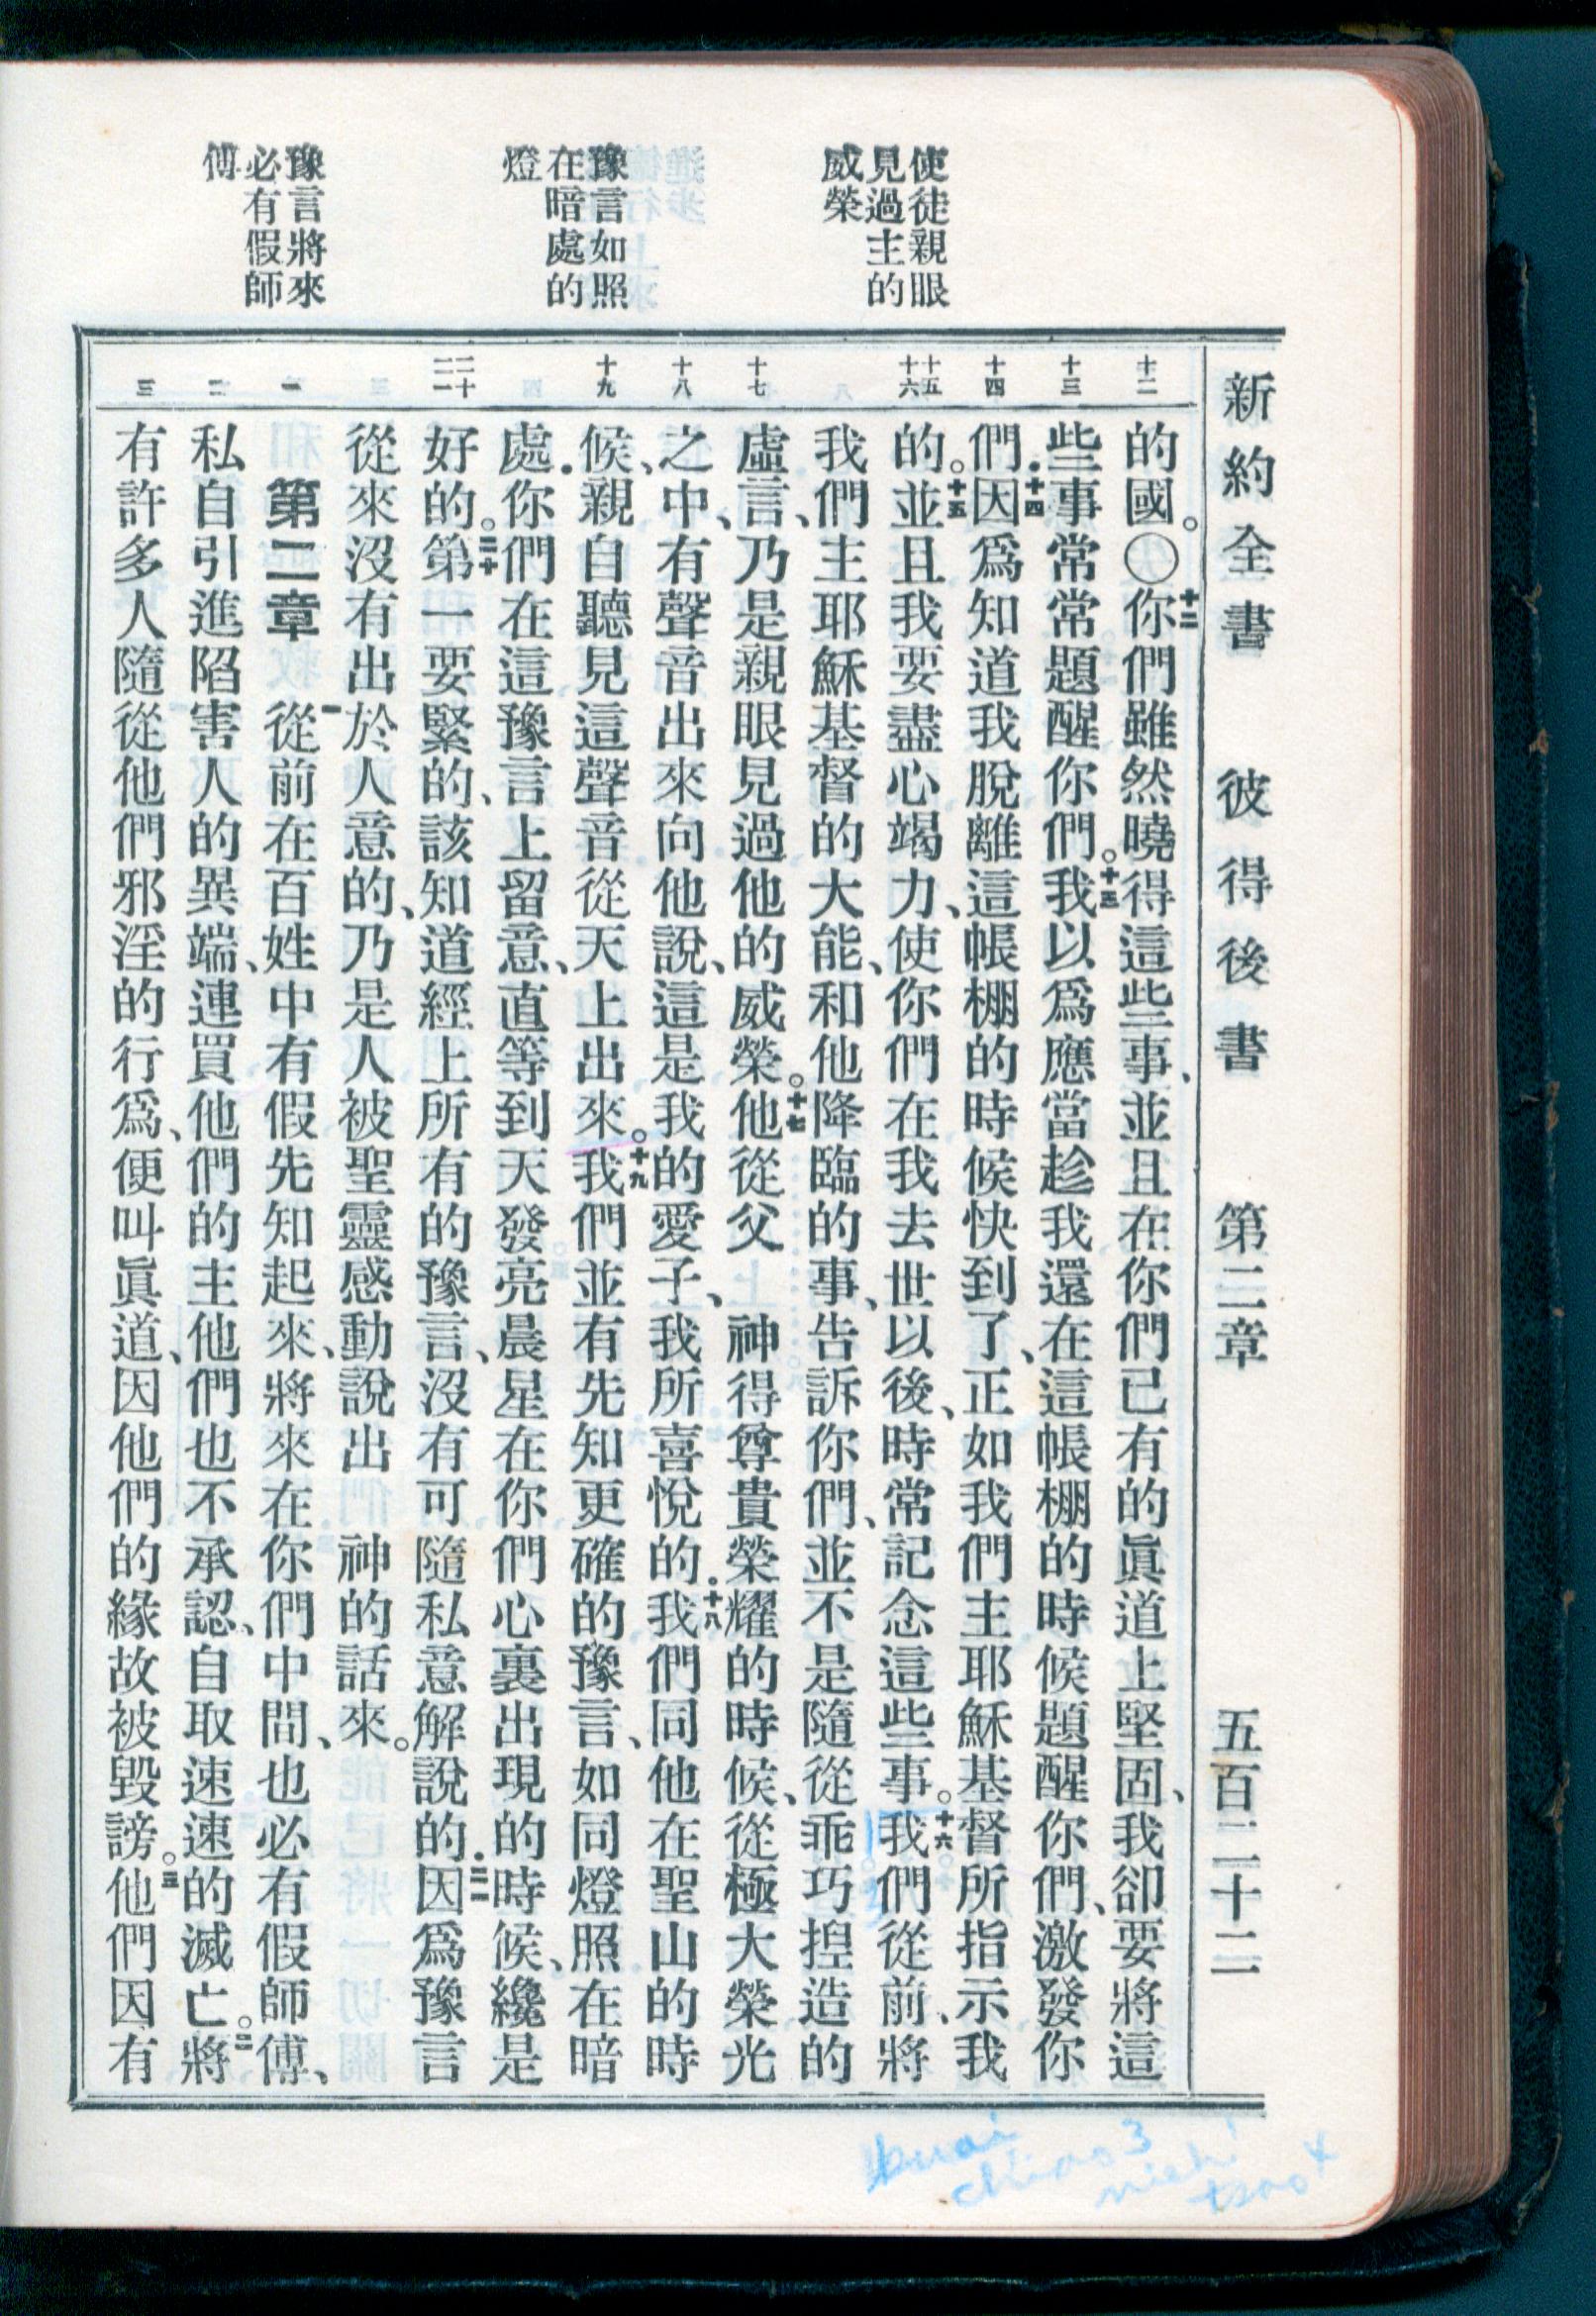 新約全書 彼得後書 第二章 五百二十二
使徒親眼
見過主的
威榮
豫言如照
在暗處的
燈
豫言將來
必有假師
傅
十二
十三
十四
十五
十六
十七
十八
十九
二十
二一
一
二
三
的國。〇十二你們雖然曉得這些事、並且在你們已有的眞道上堅固、我卻要將這
些事常常題醒你們。十三我以爲應當趁我還在這帳棚的時候題醒你們、激發你
們．十四因爲知道我脫離這帳棚的時候快到了、正如我們主耶穌基督所指示我
的。十五並且我要盡心竭力、使你們在我去世以後、時常記念這些事。十六我們從前、將
我們主耶穌基督的大能、和他降臨的事、告訴你們、並不是隨從乖巧揑造的
虛言、乃是親眼見過他的威榮。十七他從父 神得尊貴榮耀的時候、從極大榮光
之中、有聲音出來向他說、這是我的愛子、我所喜悅的．十八我們同他在聖山的時
候、親自聽見這聲音從天上出來。十九我們並有先知更確的豫言、如同燈照在暗
處．你們在這豫言上留意、直等到天發亮晨星在你們心裏出現的時候、纔是
好的。二十第一要緊的、該知道經上所有的豫言、沒有可隨私意解說的．二一因爲豫言
從來沒有出於人意的、乃是人被聖靈感動說出 神的話來。
第二章 一從前在百姓中有假先知起來、將來在你們中間、也必有假師傅、
私自引進陷害人的異端、連買他們的主他們也不承認、自取速速的滅亡。二將
有許多人隨從他們邪淫的行爲、便叫眞道、因他們的緣故被毀謗。三他們因有
kuai
chiao3
nieh1
tsao4